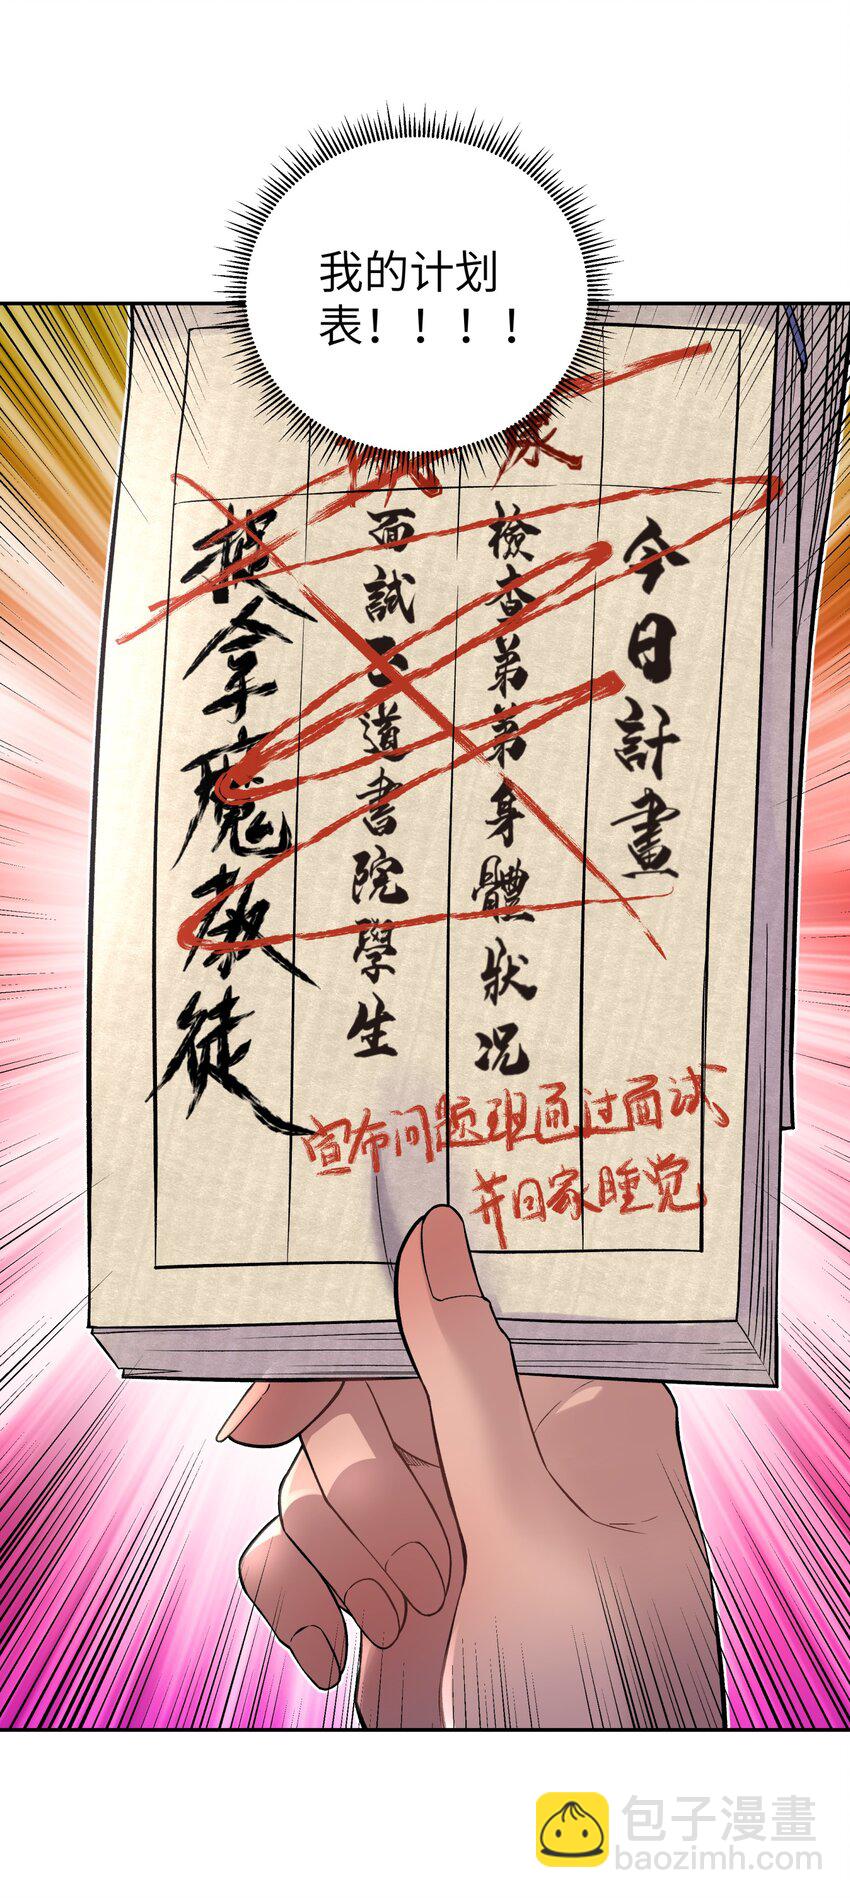 我的计划
表！！！！
今日計畫
檢查弟弟身體狀况
面試正道書院學生
捉拿魔教徒
宣布问题班通过面试
并回家睡觉
包子漫畫
baozimh.com